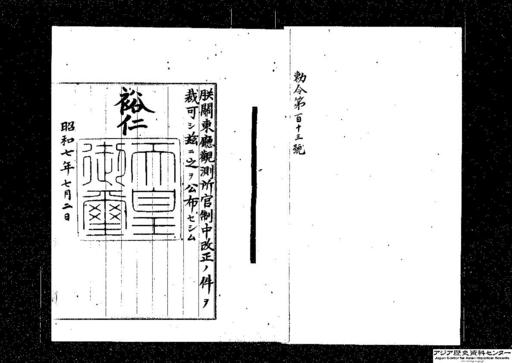 勅令第百十三號
朕關東廳觀測所官制中改正ノ件ヲ
裁可シ茲ニ之ヲ公布セシム
裕仁
天皇
御璽
昭和七年七月二日
アジア歴史資料センター
Japan Center for Asian Historical Records